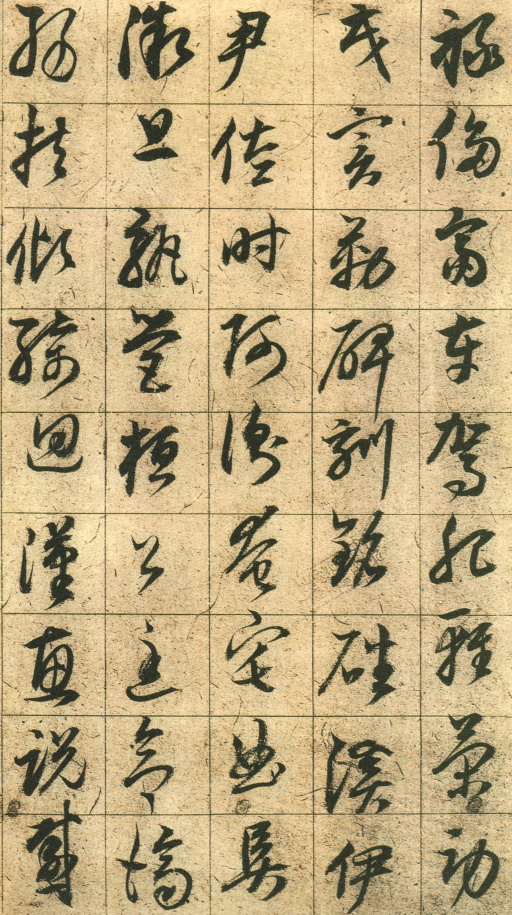 祿侈富車駕肥輕策功
茂實勒碑刻銘磻溪伊
尹佐時阿衡奄宅曲阜
微旦孰營桓公匡合濟
弱扶傾綺迴漢惠說感